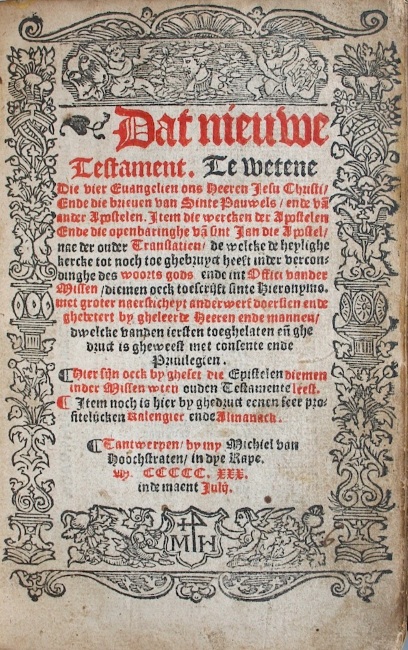 Dat nieuwe
Testament. Te wetene
Die vier Euangelien ons Heeren Jesu Christi/
Ende die brieuen van Sinte Pauwels / ende vā
ander Apostelen. Item die wercken der Apostelen
Ende die openbaringhe vā sint Jan die Apostel/
nae der ouder Translatien / de welcke de heylighe
kercke tot noch toe ghebruyct heeft inder vercon-
dinghe des woorts gods ende int Officie vander
Missen / diemen oeck toescrijft sinte Hieronymo.
met groter neersticheyt anderwerf doersien ende
ghebetert by gheleerde Heeren ende mannen/
dwelcke vanden iersten toeghelaten eñ ghe
druct is gheweest met consente ende
Priuilegien.
¶ Hier sijn oeck by gheset die Epistelen diemen
inder Missen wten ouden Testamente leest.
¶ Item noch is hier by ghedruct eenen seer pro-
fitelijcken Kalengier ende Almanack.
¶ Tantwerpen / by my Michiel van
Hoochstraten / in dye Rape.
M. CCCCC. XXX.
inde maent July.
MH